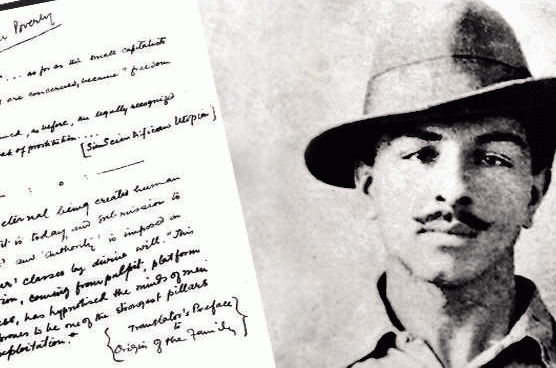 Poverty
... as for as the small capitalists
are concerned, became "freedom
, as before, the legally recognized
of prostitution....
[Sim Scientific an Utopian]
eternal being creates human
it is today, and submission to
and 'authority' is imposed on
' classes by divine will." This
, coming from pulpit, platform
, has hypnotised the minds of men
to be one of the strongest pillars
exploitation."
{Translator's Preface
to
Origin of the Family}